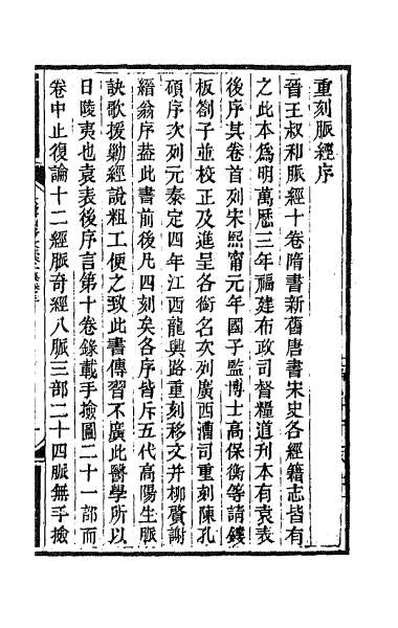 重刻脈經序
晉王叔和脈經十卷隋書新舊唐書宋史各經籍志皆有
之此本為明萬厯三年福建布政司督糧道刊本有袁表
後序其卷首列宋熙甯元年國子監博士高保衡等請鏤
板劄子並校正及進呈各銜名次列廣西漕司重刻陳孔
碩序次列元泰定四年江西龍興路重刻移文并柳贇謝
縉翁序葢此書前後凡四刻矣各序皆斥五代高陽生脈
訣歌援勦經說粗工便之致此書傳習不廣此醫學所以
日陵夷也袁表後序言第十卷錄載手撿圖二十一部而
卷中止復論十二經脈奇經八脈三部二十四脈無手撿